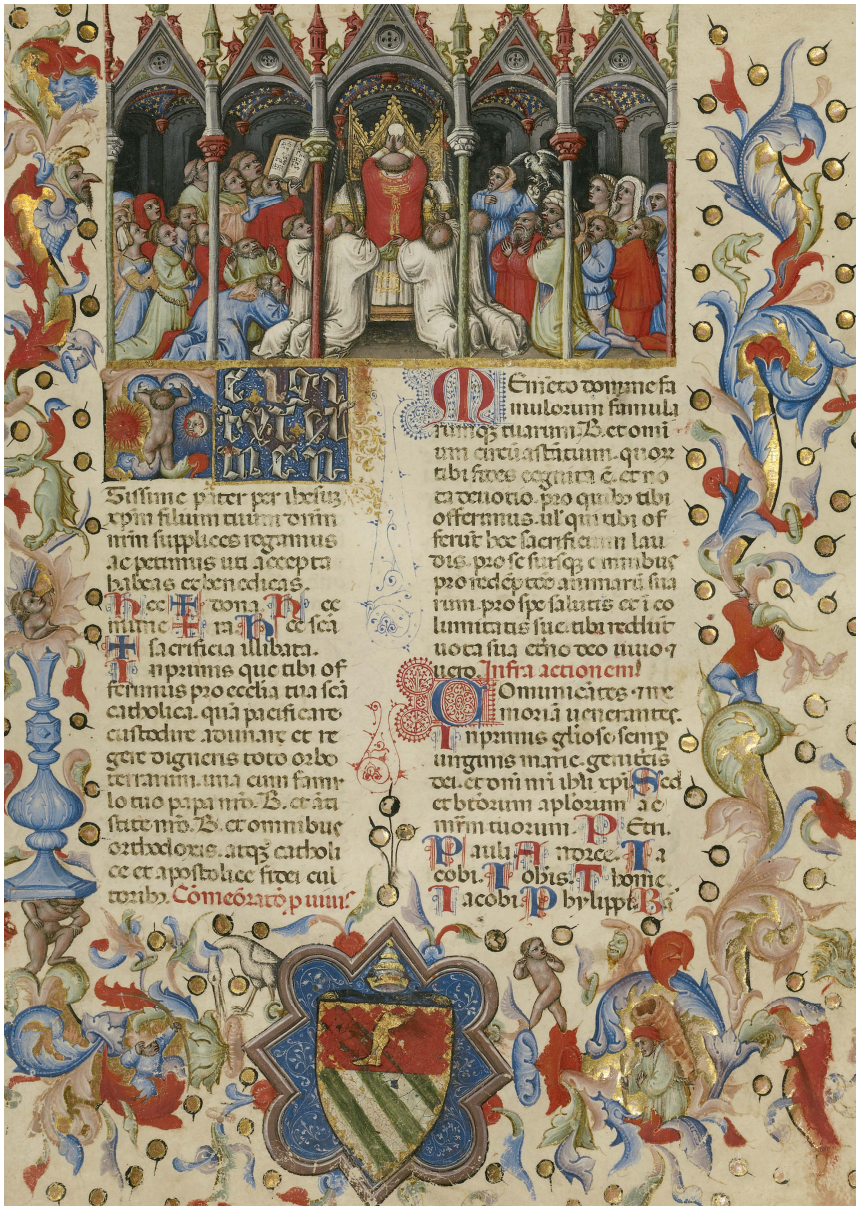 E igi
tur cle
men
tissime pater per ihesuz
xpm filium tuum dnm
nrm supplices rogamus
ac petimus uti accepta
habeas et benedicas.
Hec ✝ dona. H ec
mune ✝ ra. H ec scā
✝ sacrificia illibata.
I nprimis que tibi of
ferimus pro ecclīa tua scā
catholica. quā pacificare
custodire adunare et re
gere digneris toto orbe
terrarum. una cum famu
lo tuo papa nrō. B. et āti
stite nrō. B. et omnibus
orthodoxis. atqȝ catholi
ce et apostolice fidei cul
toribȝ. Cōmeōratō p uiuis
Memēto domine fa
mulorum famula
rumqȝ tuarum. B. et omī
um circū astātium. quor
tibi fides cognita ē. et no
ta deuotio. pro quibȝ tibi
offerimus. ul' qui tibi of
ferūt hoc sacrificium lau
dis. pro se suisqȝ omnibus
pro redēptōe animarū sua
rum. pro spe salutis et īco
lumitatis sue. tibi reddūt
uota sua etno deo uiuo ⁊
uero. Infra actionem
Comunicātes. ⁊ me
moriā uenerantes.
Inprimis gliose semp
uirginis marie. genitcis
dei. et dnī nrī ihū xpī. Sed
et btōrum aplōrum ac
mrm tuorum. P Etri.
P auli. A ndree. I a
cobi. I ohis. T home
I acobi. P hylippi. Ba